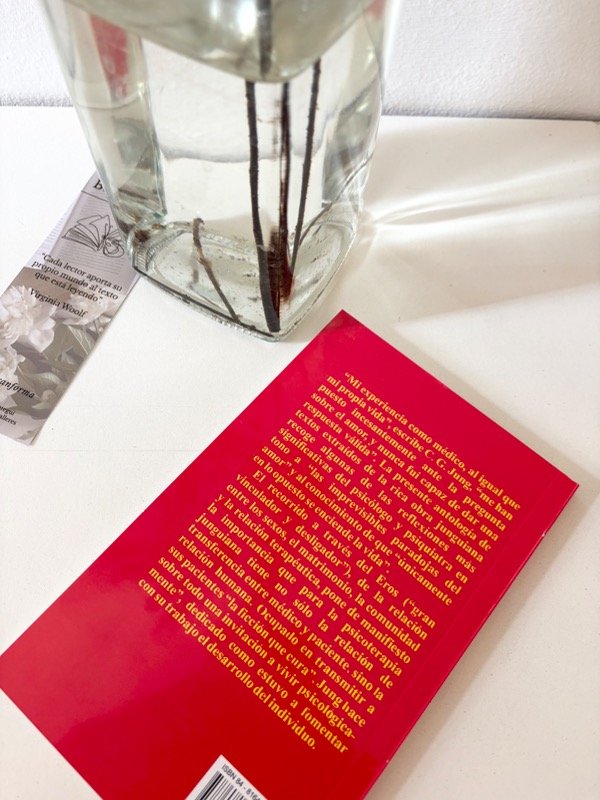 b
"Cada lector aporta su
propio mundo al texto
que está leyendo"
Virginia Woolf
"Mi experiencia como médico, al igual que
mi propia vida", escribe C. G. Jung, "me han
puesto incesantemente ante la pregunta
sobre el amor, y nunca fui capaz de dar una
respuesta válida". La presente antología de
textos extraídos de la rica obra junguiana
recoge algunas de las reflexiones más
significativas del psicólogo y psiquiatra en
torno a "las imprevisibles paradojas del
amor", y al conocimiento de que "únicamente
en lo opuesto se enciende la vida".
El recorrido a través del Eros ("gran
vinculador y desligador"), de la relación
entre los sexos, el matrimonio, la comunidad
y la relación terapéutica, pone de manifiesto
la importancia que para la psicoterapia
junguiana tiene no sólo la relación de
transferencia entre médico y paciente, sino la
relación humana. Ocupado en transmitir a
sus pacientes "la ficción que cura", Jung hace
sobre todo una invitación a vivir psicológica-
mente", dedicado como estuvo a fomentar
con su trabajo el desarrollo del individuo.
ISBN 84 - 816